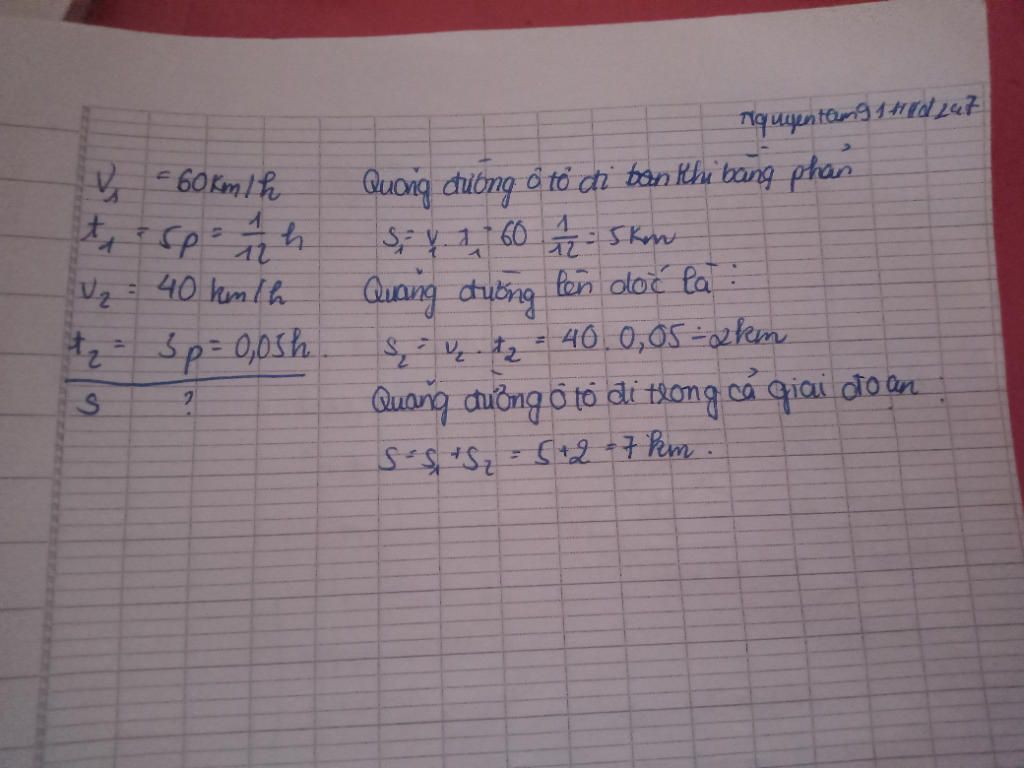 Nguyentam91Hvd247
V₁ = 60km/h
t₁ = 5p = 1/12 h
v₂ = 40 km/h
t₂ = 3p = 0,05h.
S ?
Quãng đường ô tô đi ban khi bằng phẳng
S₁ = v₁. t₁ = 60 1/12 = 5km
Quãng đường lên dốc là :
S₂ = v₂. t₂ = 40. 0,05 = 2km
Quãng đường ô tô đi trong cả giai đoạn :
S = S₁ + S₂ = 5+2 = 7 km.